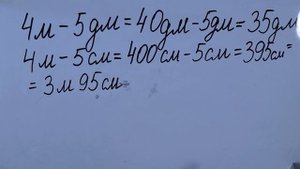 4м-5дм=40дм-5дм=35дм
4м-5см=400см-5см=395см=
=3м 95см